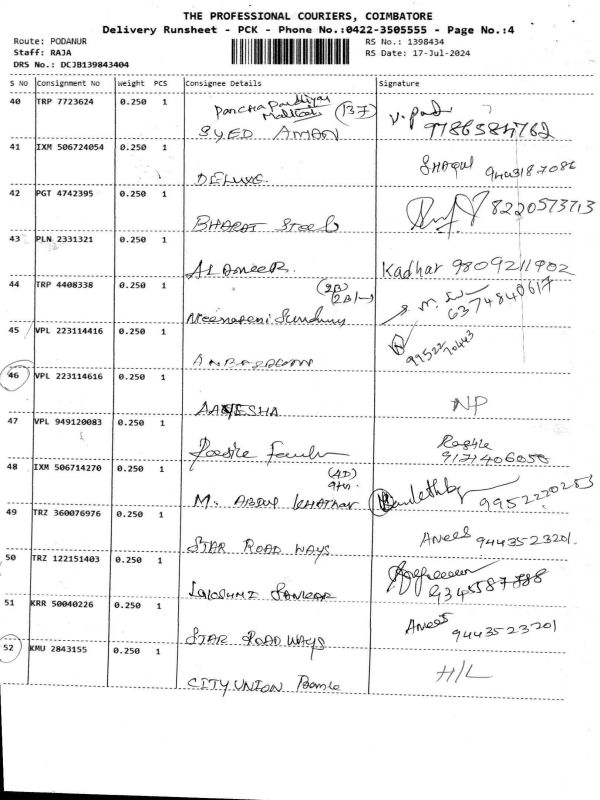 THE PROFESSIONAL COURIERS, COIMBATORE
Delivery Runsheet - PCK - Phone No.:0422-3505555 - Page No.:4
Route: PODANUR RS No.: 1398434
Staff: RAJA RS Date: 17-Jul-2024
DRS No.: DCJB139843404
S No Consignment No Weight PCS Consignee Details Signature
40 TRP 7723624 0.250 1
SYED AMAN
41 IXM 506724054 0.250 1
DELUXE
42 PGT 4742395 0.250 1 8220573713
BHARAT Steels
43 PLN 2331321 0.250 1
Al Ameer Kadhar 9809211902
44 TRP 4408338 0.250 1 (2B)
6374840617
45 VPL 223114416 0.250 1
46 VPL 223114616 0.250 1
AAYESHA NP
47 VPL 949120083 0.250 1
9171406050
48 IXM 506714270 0.250 1 (4D)
M. ABDUL KHATHAR 9952220253
49 TRZ 360076976 0.250 1
STAR ROAD WAYS Anees 9443523201.
50 TRZ 122151403 0.250 1
LAKSHMI SANKAR
51 KRR 50040226 0.250 1
STAR ROAD WAYS Anees 9443523201
52 KMU 2843155 0.250 1
CITY UNION Bank H/L